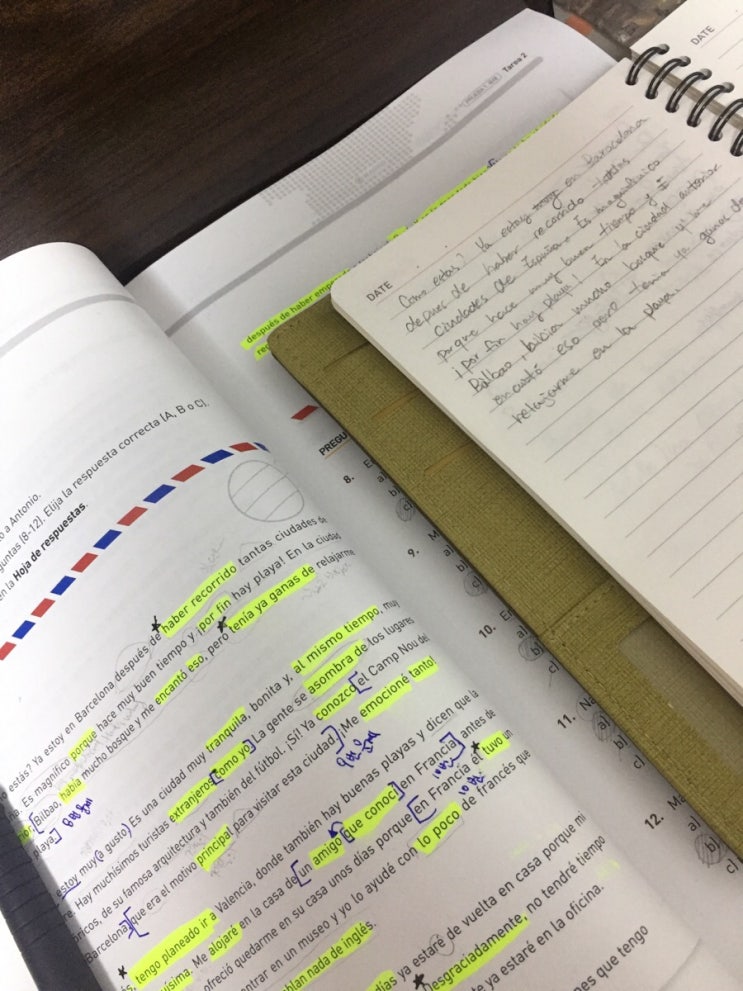 Tarea 2
PRUEBA 1
después de haber emp
DATE
DATE
Como estas? Ya estoy en Barcelona
depues de haber recorrido tantas
ciudades de España. Es magnifico
porque hace muy buen tiempo y
¡por fin hay playa! En la ciudad anterior
Bilbao, había mucho bosque y me
encantó eso pero tenía ya ganas de
relajarme en la playa.
PREGU
8.
a)
b)
c)
9.
a)
b)
c)
10.
a)
b)
c)
11.
a)
b)
c)
12.
a)
b)
c)
o a Antonio.
guntas (8-12). Elija la respuesta correcta (A, B o C).
en la Hoja de respuestas.
estás? Ya estoy en Barcelona después de haber recorrido tantas ciudades de
na. Es magnífico porque hace muy buen tiempo y ¡por fin hay playa! En la ciudad
ior, Bilbao, había mucho bosque y me encantó eso, pero tenía ya ganas de relajarme
playa.
estoy muy a gusto) Es una ciudad muy tranquila, bonita y, al mismo tiempo, muy
re. Hay muchísimos turistas extranjeros como yo. La gente se asombra de los lugares
óricos, de su famosa arquitectura y también del fútbol. ¡Sí! Ya conozco el Camp Nou del
Barcelona, que era el motivo principal para visitar esta ciudad. Me emocioné tanto
s, tengo planeado ir a Valencia, donde también hay buenas playas y dicen que la
ísima. Me alojaré en la casa de un amigo que conocí en Francia antes de
ofreció quedarme en su casa unos días porque en Francia él tuvo un
ntrar en un museo y yo lo ayudé con lo poco de francés que
blan nada de inglés.
días ya estaré de vuelta en casa porque mi
esgraciadamente, no tendré tiempo
te ya estaré en la oficina.
nes que tengo